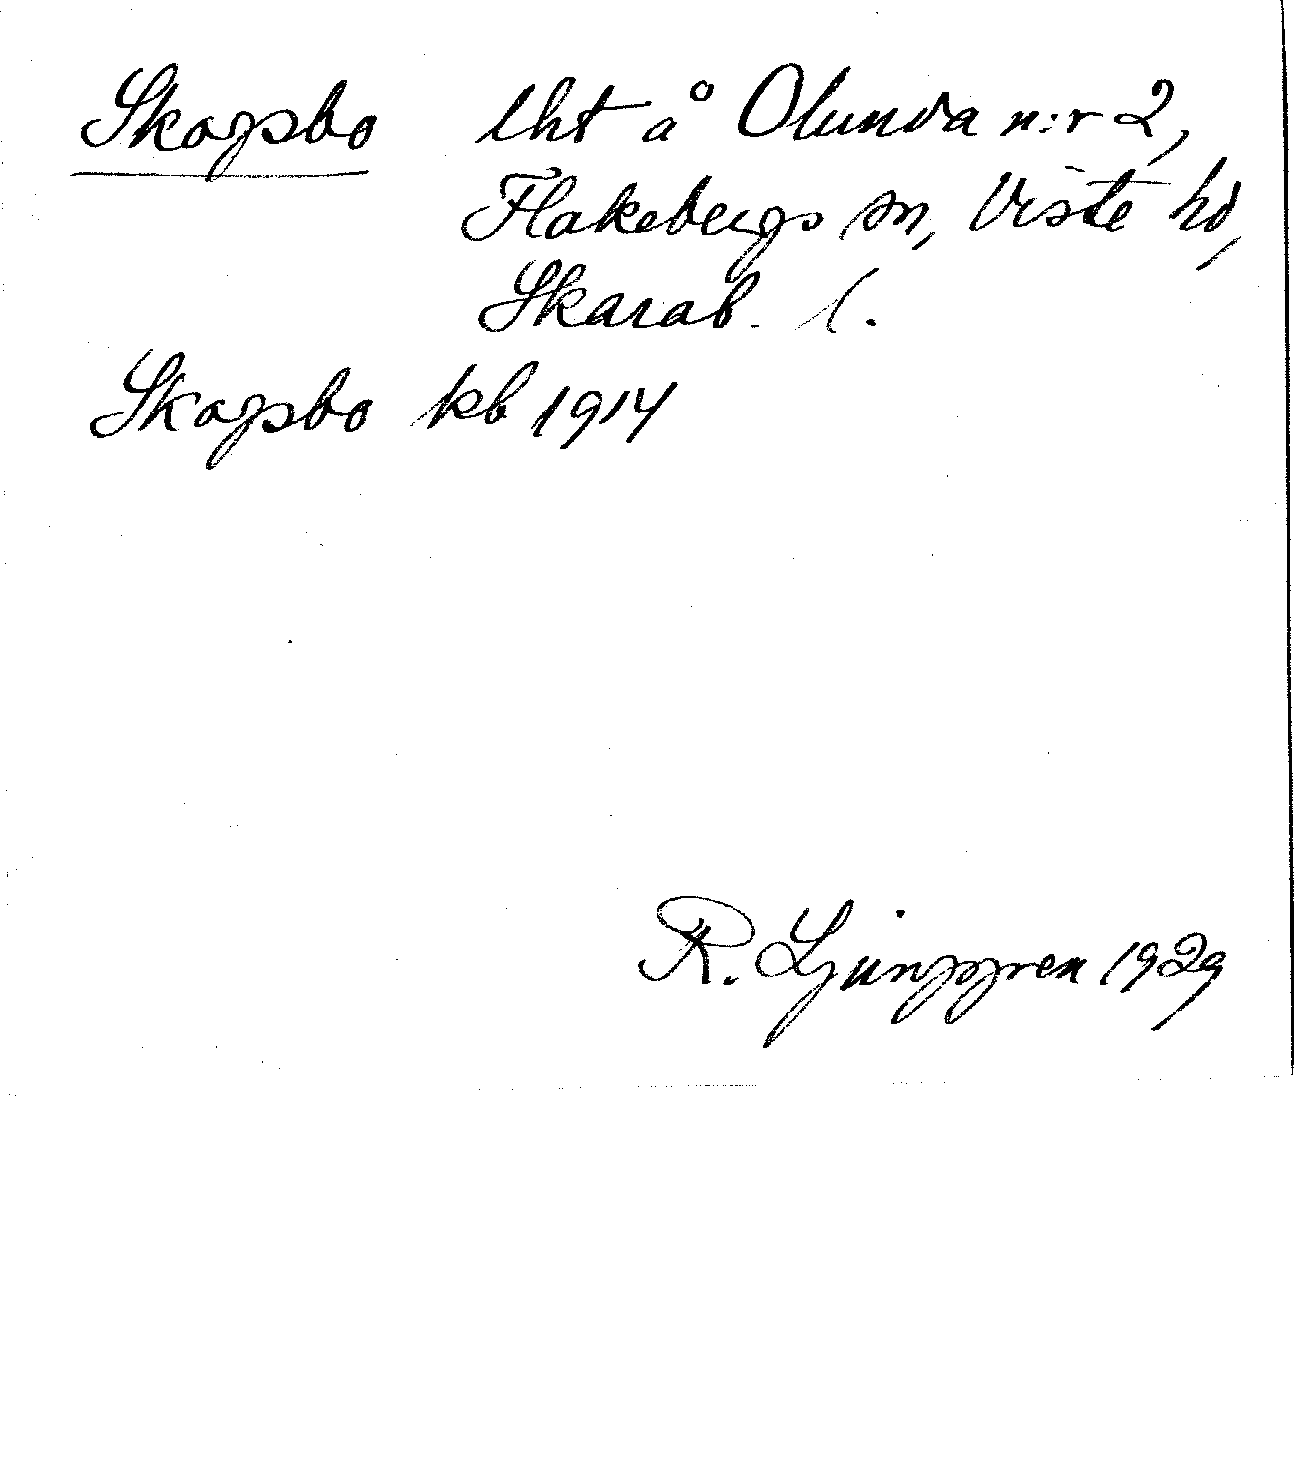 Skogsbo lht å Olunda n:r 2,
Flakebergs sn, Viste hd,
Skarab. l.
Skogsbo kb 1914
R. Ljunggren 1929